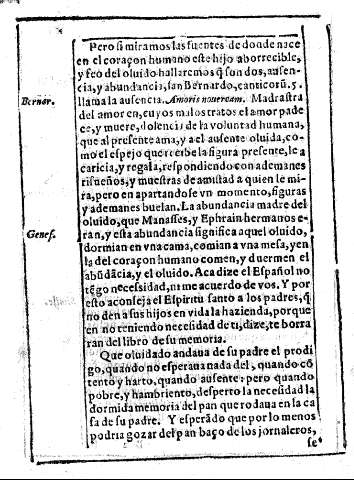 Pero si miramos las fuentes de donde nace
en el coraçon humano este hijo aborrecible,
y feo del oluido hallaremos q̃ son dos, ausen-
cia, y abundancia, san Bernardo, canticorũ. 5.
Bernar.
llama la ausencia. Amoris nouercam. Madrastra
del amor en, cuyos malos tratos el amor pade
ce, y muere, dolencia de la voluntad humana,
que al presente ama, y a el ausente oluida, co-
mo el espejo que recerbe la figura presente, le a
caricia, y regala, respondiendo con ademanes
risueños, y muestras de amistad a quien le mi-
ra, pero en apartandose vn momento, figuras
y ademanes buelan. La abundancia madre del
oluido, que Manasses, y Ephrain hermanos e-
Genes.
ran, y esta abundancia significa aquel oluido,
dormian en vna cama, comian a vna mesa, y en
la del coraçon humano comen, y duermen el
abũdãcia, y el oluido. Aca dize el Español no
tẽgo necessidad, ni me acuerdo de vos. Y por
esto aconseja el Espiritu santo a los padres, q̃
no den a sus hijos en vida la hazienda, porque
en no teniendo necesidad de ti, dize, te borra
ran del libro de su memoria.
Que oluidado andaua de su padre el prodi
go, quando no esperaua nada del, quando cõ
tento y harto, quando ausente: pero quando
pobre, y hambriento, desperto la necesidad la
dormida memoria del pan que rodaua en la ca
sa de su padre. Y esperãdo que por lo menos
podria gozar del pan baço de los jornaleros,
se